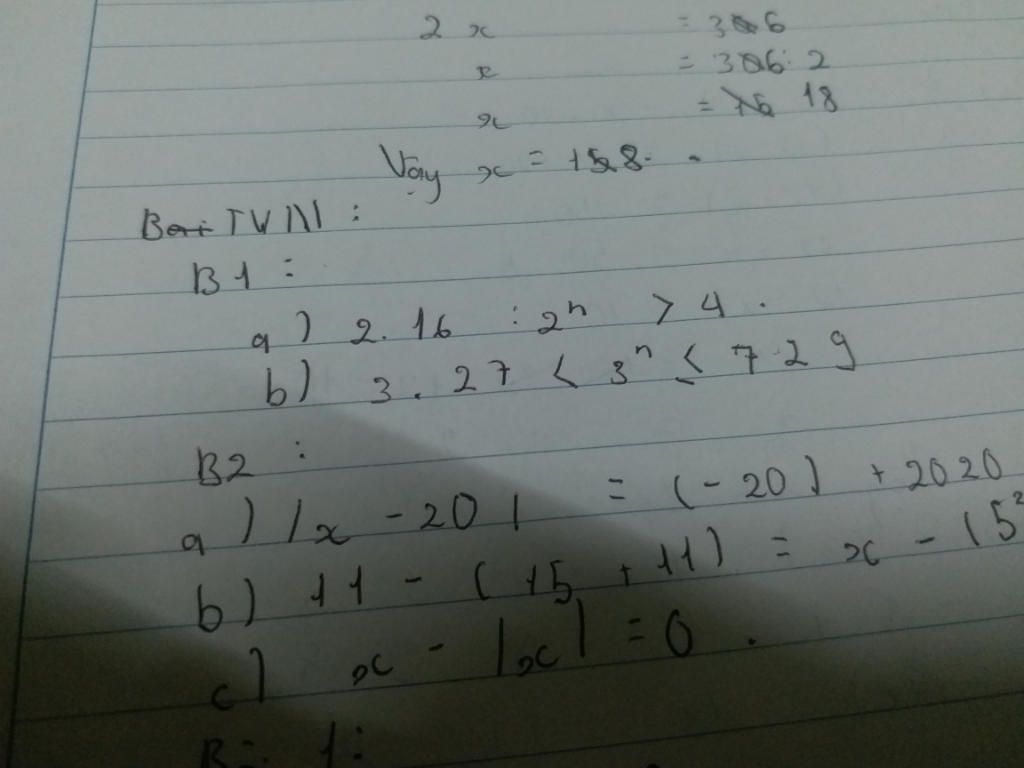 2x = 36
x = 36: 2
x = 18
Vậy x = 18.
Bài TVN :
B1 :
a) 2.16 : 2ⁿ > 4 .
b) 3.27 < 3ⁿ ≤ 729
B2 :
a) |x - 20| = (-20) + 2020
b) 11 - (15 + 11) = x - (5²
c) x - |x| = 0 .
1: